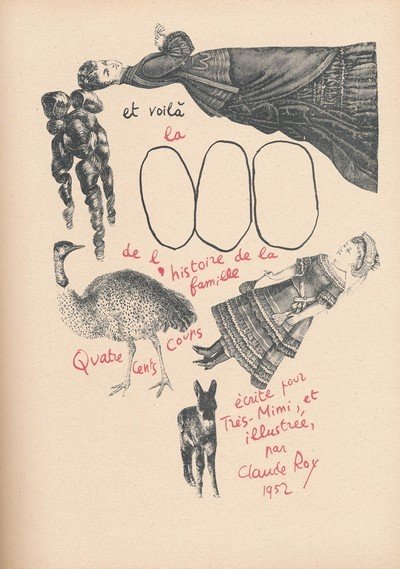 et voilà
la
de l'histoire de la
famille
Quatre Cents Coups
écrite pour
Très-Mimi, et
illustrée,
par
Claude Roy
1952